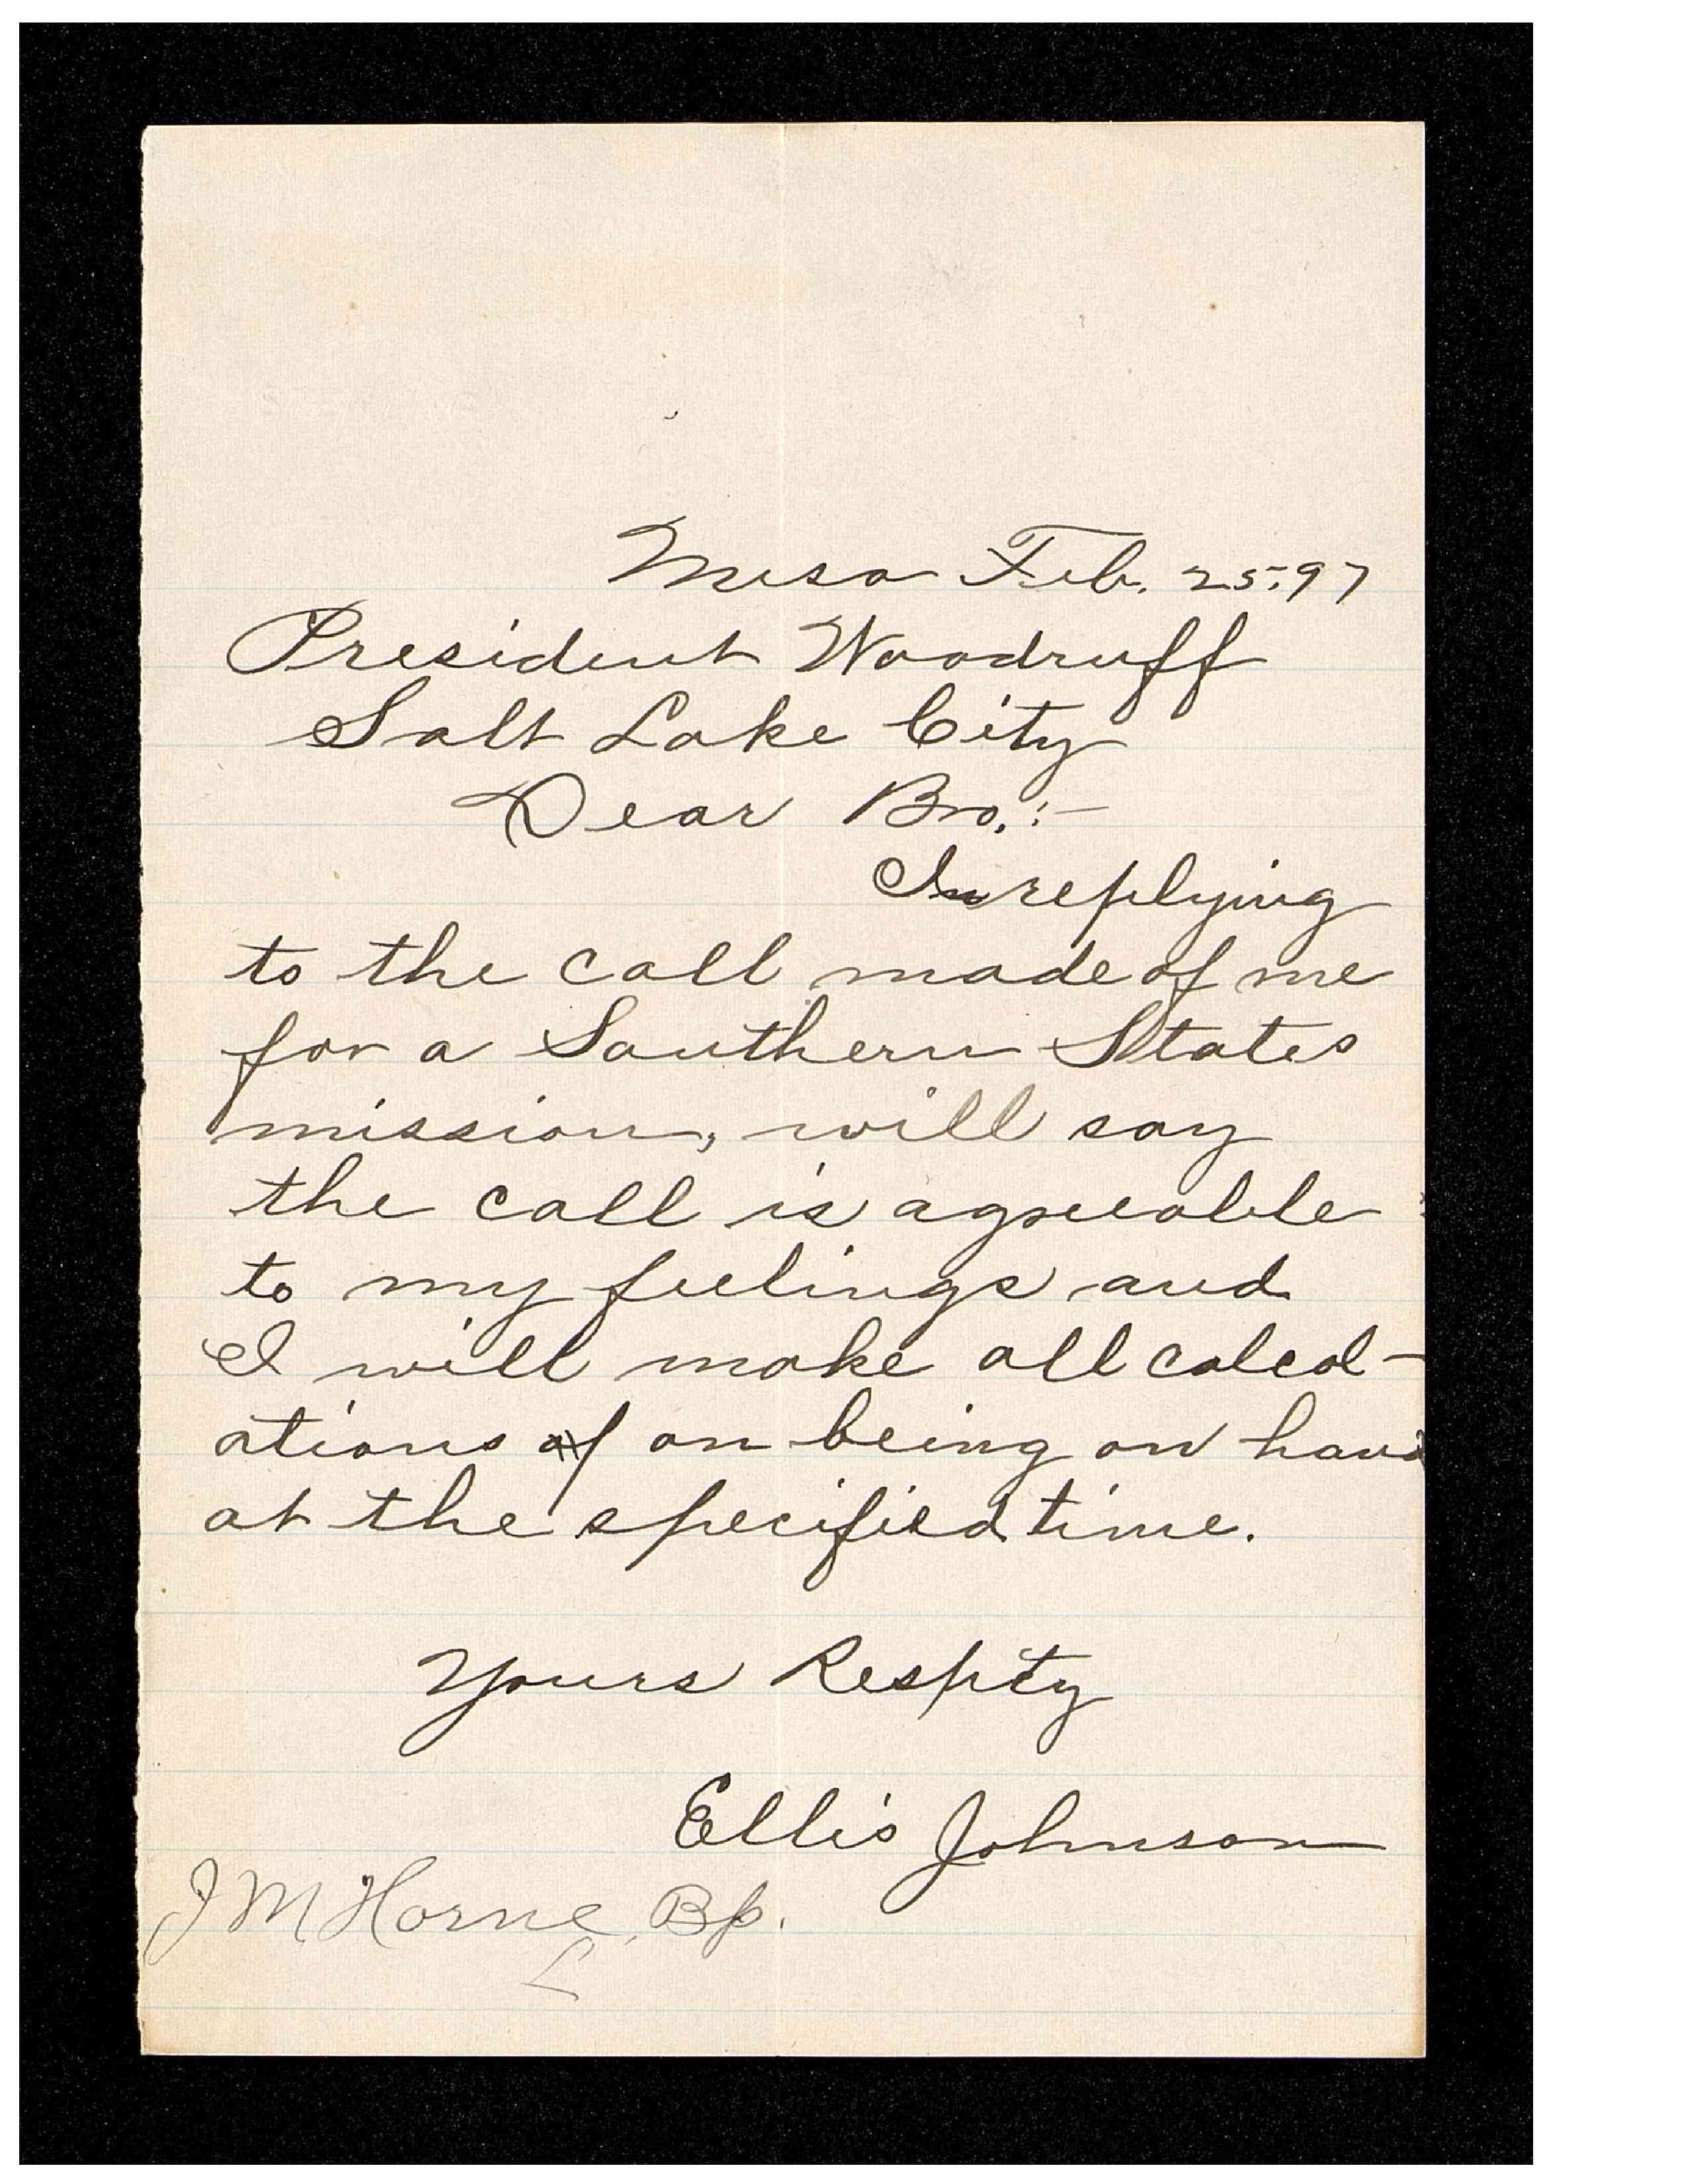 Mesa Feb. 25, 97
President Woodruff
Salt Lake City
Dear Bro.:-
In replying
to the call made of me
for a Southern States
mission, will say
the call is agreeable
to my feelings and
I will make all calcul-
ations of on being on hand
at the specified time.
Yours Respty
Ellis Johnson
J M Horne, Bp.